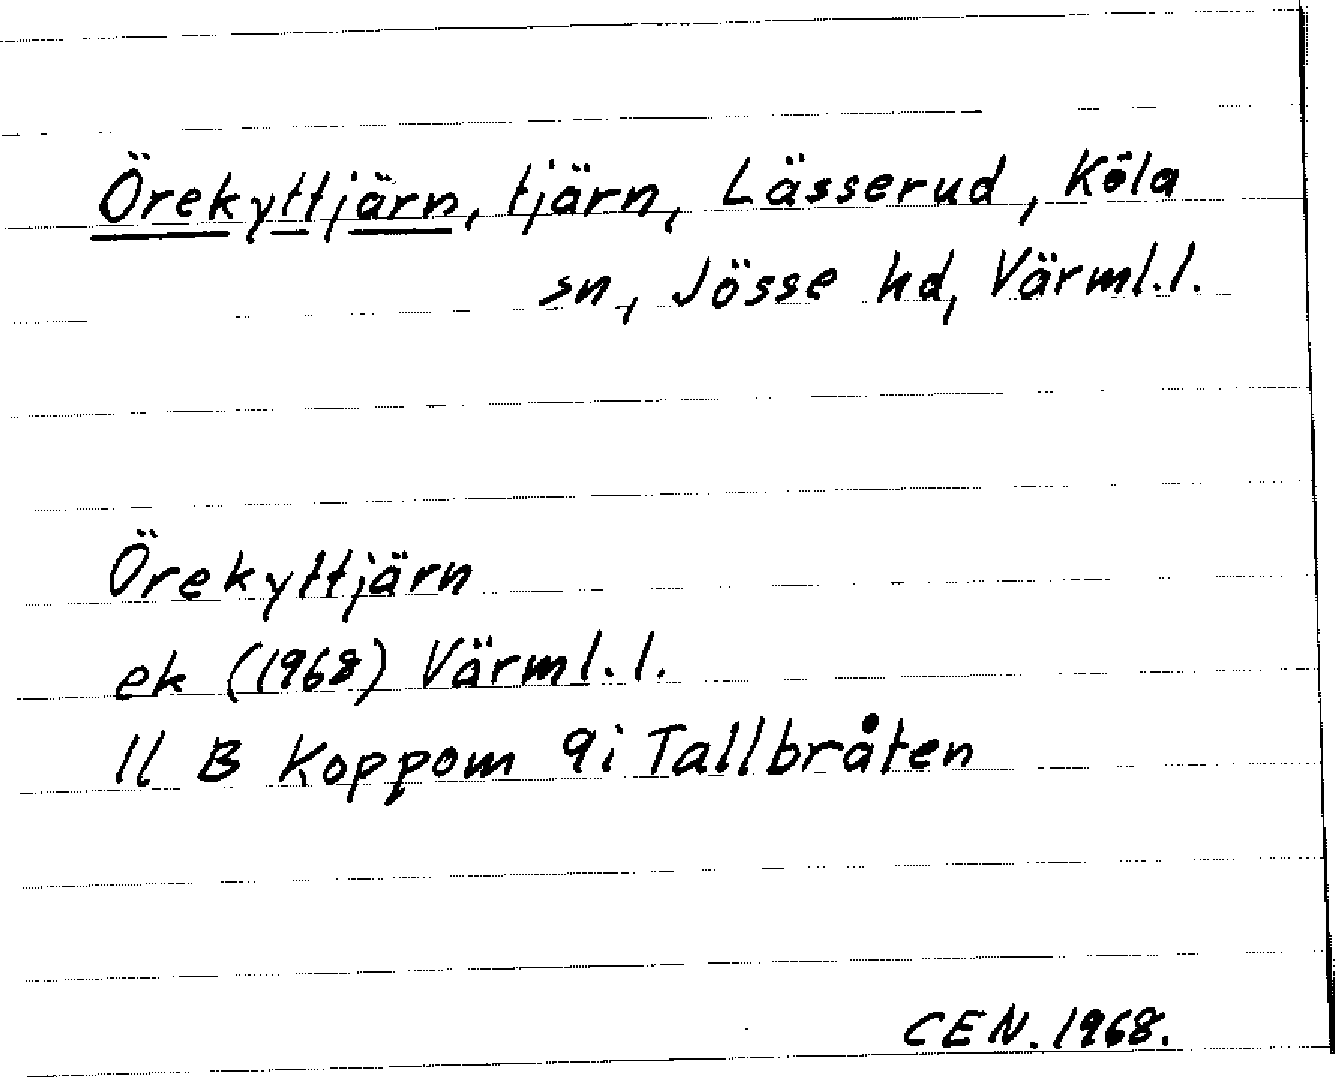 Örekyttjärn, tjärn, Lässerud, Köla
sn, Jösse hd, Värml.l.
Örekyttjärn
ek (1968) Värml.l.
11 B Koppom 9i Tallbråten
CEN. 1968.